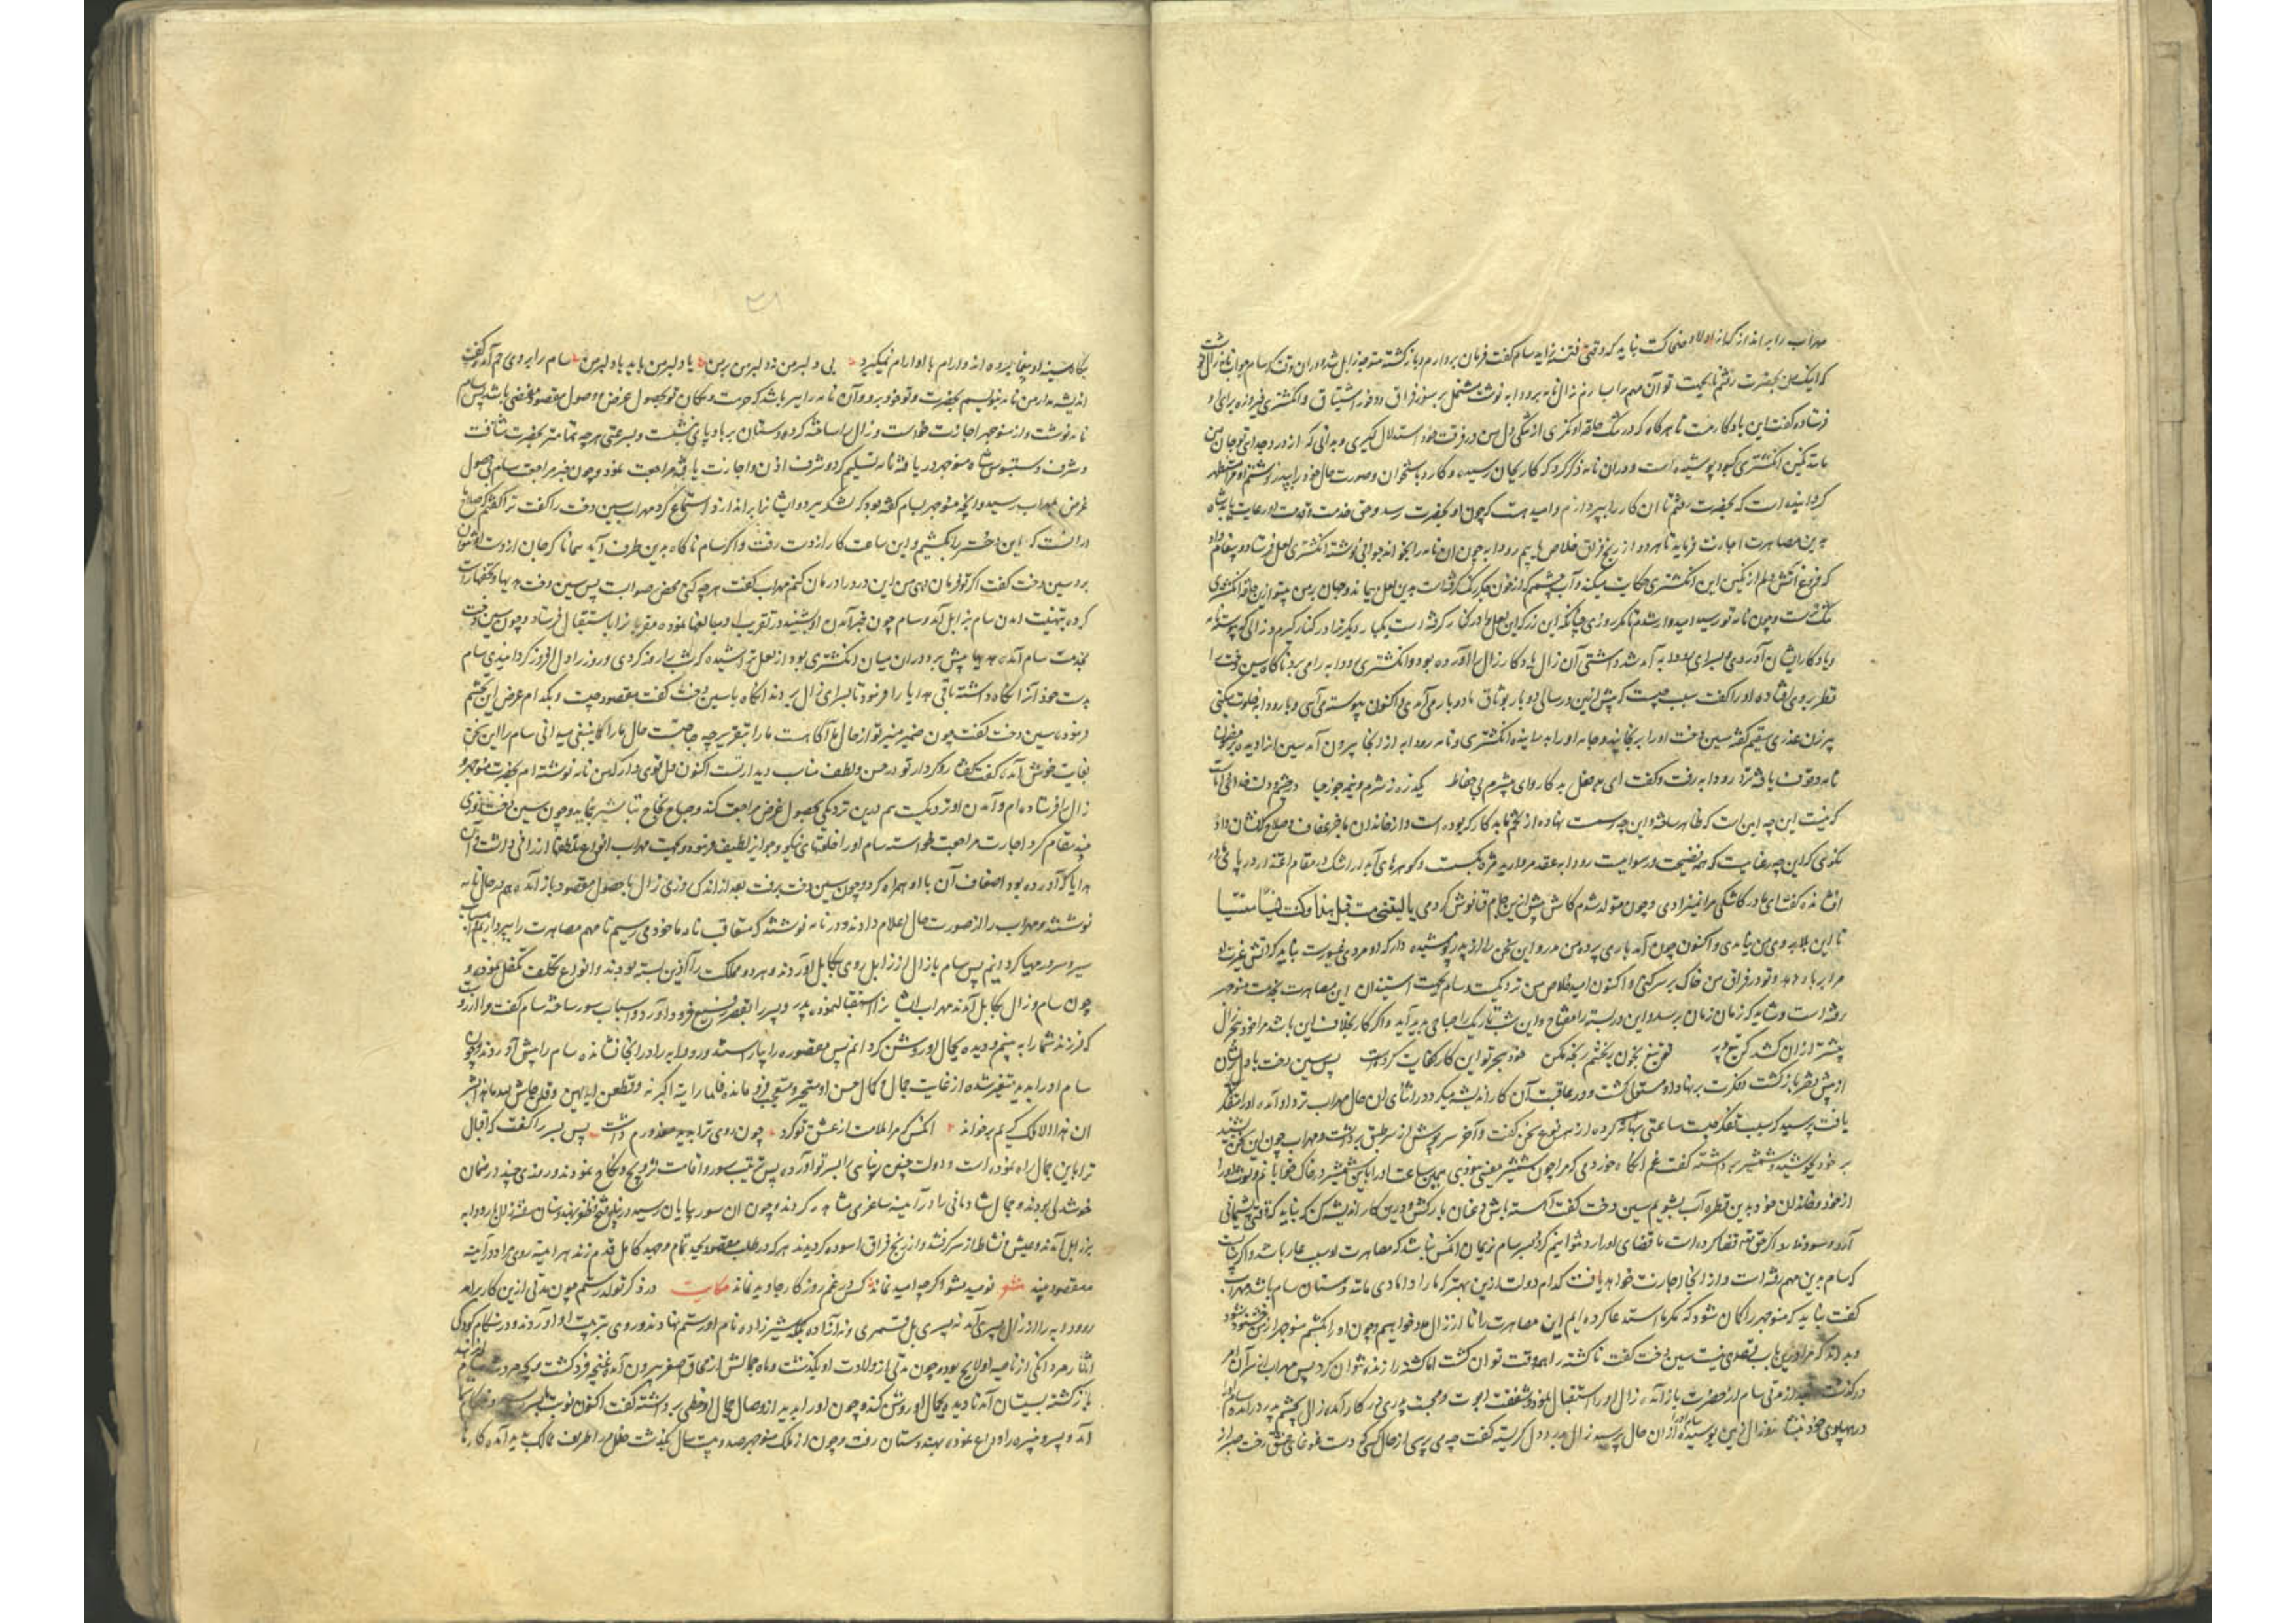 مهراب را براندازد که از اولاد ضحاکست نباید که وقتی فتنه زاید سام گفت فرمان بردارم و بازگشته متوجه زابل شد و در آن وقت که سام جواب نامه زال
که اینک من بحضرت رفتم تا بجهت تو آن مهم را بسازم زال نامه برودابه نوشت مشتمل بر سوز فراق و وفور اشتیاق و انگشتری فیروزه برای او
فرستاده گفت این یادگار تست تا هرگاه که در تنگ حلقه او نگری از تنگی دل من در فرقت خود استدلال گیری و بدانی که
مانند نگین انگشتری کبود پوشیده است و در آن نامه ذکر کرد که کار بجان رسید و کارد باستخوان و صورت حال خود را بپدر نوشتم او مرا مستظهر
گردانیده است که بحضرت رفتم تا آن کار را بپردازم و امید هست که چون او بحضرت رسد و حق خدمت و قدمت او رعایت یابد شاه
بدین مصاهرت اجازت فرماید تا هر دو از رنج فراق خلاص یابیم رودابه چون آن نامه را بخواند جوابی نوشته انگشتری لعل فرستاد و پیغام داد
که فروغ آتش دلم از نگین این انگشتری حکایت میکند و آب چشمم که از خون جگر رنگ گرفته است بدین لعل میماند و جهان بر من
تنگ است و چون نامه تو رسید امیدوار شدم تا مگر روزی چنانکه این زر که این لعل را در کنار گرفته است یکبار دیگر ترا در کنار گیرم و زالی که پیوسته نامه
و یادگار ایشان آوردی و بسرای رودابه آمد شد داشتی آن زال نامه و یادگار زال را آورده بود و انگشتری رودابه را می برد ناگاه سین دخت را
نظر بر وی افتاده او را گفت سبب چیست که پیش ازین در سالی دو بار بوثاق ما دو بار می آمدی و اکنون پیوسته می آیی و با رودابه خلوت میکنی
پیرزن عذری سقیم گفته سین دخت او را برنجانید و جامه او را
نامه وقوف یافته نزد رودابه رفت و گفت ای بدفعل بدکار وای بیشرم بی حفاظ
که نیست این چه
نگویی که این چه رعنائیست که همه فضیحت و رسواییست رودابه عقد مروارید مژه بگسست و گوهرهای آبدار اشک در مقام اعتذار در پای مادر
افشانده گفت ای مادر کاشکی مرا نمیزادی و چون متولد شدم کاش پیش ازین یا لیتنی مت قبل هذا و کنت نسیا منسیا
تا این بلا بر وی من نیامدی و اکنون چون آمد باری پرده من مدر و این سخن را از پدر پوشیده دار که او مردی غیورست نباید که آتش غیرت او
مرا بر باد دهد و تو در فراق من خاک بر سر کنی و اکنون امید خلاص من نزدیکست و سام بجهت استیذان این مصاهرت بخدمت منوچهر
رفته است و شاید که زمان زمان برسد و این در بسته را مفتاح و این شب تاریک را صباحی پدید آید و اگر کار بخلاف این باشد مرا خود هجر زال
پیشتر از آن کشد که تیغ پدر تو تیغ بخون بختم رنجه مکن خود هجر تو این کار کفایت کردست پس سین دخت با دل پریشان
از پیش دختر بازگشت و فکرت بر نهاد او مستولی گشت و در عاقبت آن کار اندیشه میکرد در اثنای آن حال مهراب نزد او آمده او را متفکر
یافت پرسید که سبب تفکر چیست ساعتی بهانه کرده از هر نوع سخن گفت و آخر سرپوش از سر طبق برداشت و مهراب چون این سخن شنید
بر خود بجوشید و شمشیر برداشته گفت غم آنگاه خوردمی که مرا چون شمشیر معینی نبودی همین ساعت او را با تیغ شمشیر در خاک
از خود و خاندان خود بدین قطره آب بشویم سین دخت گفت آهسته باش و عنان بازکش و درین کار اندیشه کن که نباید که وقتی پشیمانی
آرد و سود ندارد اگر حق تعالی قضا کرده است ما قضای او را رد نتوانیم کرد پسر سام نریمان آنکس نباشد که مصاهرت او سبب عار باشد
که سام بدین مهم رفته است و از آنجا اجازت خواهد یافت کدام دولت ازین بهتر که ما را دامادی مانند دستان سام باشد مهراب
گفت نباید که منوچهر را گمان شود که مگر ما استدعا کرده ایم این مصاهرت را تا از زال مدد خواهیم و چون او را بکشیم منوچهر از من خشنود شود
و بداند که مرا درین باب قصدی نیست سین دخت گفت ناکشته را هر وقت توان کشت اما کشته را زنده نتوان کرد پس مهراب از سر آن امر
درگذشت بعد از مدتی سام از حضرت بازآمده زال او را استقبال نمود و شفقت ابوت و محبت پدری در کار آمده زال بچشم پدر درآمده
در پهلوی خود بنشاند زال زمین بوسیده از آن حال پرسید زال از درد دل گریسته گفت چه می پرسی از حال کسی که دست غوغای عشق رخت صبر از
بنگاه سینه او بیغما برده اند و آرام با او آرام نمیگیرد بی دلبر من نه دل بر من بر من یا دلبر من باید یا دل بر من سام را بر وی رحم آمد گفت
اندیشه مدار من نامه بنویسم بحضرت و تو خود برو و آن نامه را ببر باشد که حرمت و مکان تو بحصول غرض و وصول مقصود مفضی باشد پس سام
نامه نوشت و از منوچهر اجازت خواست و زال را ساخته کرده دستان بر بادپای نشست و بسرعتی هرچه تمامتر بحضرت شتافت
و شرف دستبوس شاه منوچهر دریافته نامه تسلیم کرد و شرف اذن و اجازت یافته مراجعت نمود و چون خبر مراجعت سام بی حصول
غرض بمهراب رسید و آنچه منوچهر بسام گفته بود که لشکر ببرد و ایشانرا براندازد استماع کرد مهراب سین دخت را گفت ترا گفتم که صلاح ما
در آنست که این دختر را بکشیم و این ساعت کار از دست رفت و اگر سام ناگاه بدین طرف آید همانا که جان از دست او نتوان
برد سین دخت گفت اگر تو فرمان دهی من این درد را درمان کنم مهراب گفت هرچه کنی محض صوابست پس سین دخت هدیها و تحفها راست
کرده بتهنیت آمدن سام بزابل آمد و سام چون خبر آمدن او شنید در تقریب او مبالغها نموده مقربانرا باستقبال فرستاد و چون سین دخت
بخدمت سام آمده هدیها پیش برد در آن میان انگشتری بود از لعل تراشیده که شب را روز کردی و روز را دل افروز گردانیدی سام
بدست خود آنرا نگاه داشته باقی هدایا را فرمود تا بسرای زال بردند آنگاه با سین دخت گفت مقصود چیست و بکدام غرض این تجشم
فرموده سین دخت گفت چون ضمیر منیر تو از حال ما آگاهست ما را بتقریر چه حاجت حال ما را کما ینبغی میدانی سام را این سخن
بغایت خوش آمده گفت گفتار و کردار تو در حسن و لطف مناسب دیدار تست اکنون دل قوی دار که من نامه نوشته ام بحضرت منوچهر و
زال را فرستاده ام و آمدن او نزدیکست هم درین نزدیکی بحصول غرض مراجعت کند و صباح نجاح تباشیر نماید و چون سین دخت روزی
چند مقام کرد اجازت مراجعت خواسته سام او را خلعتهای نیکو و جوایز لطیف فرمود و بجهت مهراب انواع تلطفها ارزانی داشت و آن
هدایا که آورده بود اضعاف آن با او همراه کرد و چون سین دخت برفت بعد از اندک روزی زال با حصول مقصود بازآمده هم در حال نامه
نوشتند و مهراب را از صورت حال اعلام دادند و در نامه نوشتند که متعاقب نامه ما خود می رسیم تا مهم مصاهرت را بپردازیم
سور و سرور مهیا گردانیم پس سام با زال از زابل روی بکابل آوردند و هر دو مملکت را آذین بسته بودند و انواع تکلف تکفل نموده و
چون سام و زال بکابل آمدند مهراب ایشانرا استقبال نموده پدر و پسر را بقصر رفیع فرود آورد و اسباب سور ساخته سام گفت
که فرزند شما را به بینم و دیده بجمال او روشن گردانم پس مقصوره را بیاراستند و رودابه را در آنجا نشانده سام را پیش آوردند و چون
سام او را بدید متغیر شده از غایت جمال و کمال حسن او متحیر و متعجب فرو مانده فلما راینه اکبرنه و قطعن ایدیهن و قلن حاش لله ما هذا بشرا
ان هذا الا ملک کریم برخواند آنکس که مرا ملامت از عشق تو کرد چون روی ترا بدید معذورم داشت پس پسر را گفت که اقبال
ترا باین جمال راه نموده است و دولت چنین زیبایی را بسر تو آورده پس ترتیب سور و اقامت تزویج و نکاح نمودند و روزی چند در ضمان
خوشدلی بودند و جمال شادمانی را در آیینه ساغر می مشاهده کردند و چون آن سور بپایان رسید
بزابل آمدند و عیش و نشاط از سر گرفتند و از رنج فراق آسوده گردیدند هر که در طلب مقصود بجد تمام و جهد کامل قدم زند هرآینه روی مراد در آیینه
مقصود بیند شعر نومید مشو اگرچه امید نماند کس در غم روزگار جاوید نماند حکایت در ذکر تولد رستم چون مدتی ازین کار برآمد
رودابه را از زال پسری آمد نه پسری بل قمری و نه آزاده بلکه شیرزاده نام او رستم نهادند و روی بتربیت او آوردند و در هنگام کودکی
آثار مردانگی از ناصیه او لایح بود و چون مدتی از ولادت او بگذشت و ماه جمالش از محاق صغر بیرون آمد
بازگشته بسیستان آمد تا دیده بجمال او روشن کند و چون او را بدید از وصال جمال او حظی برداشته گفت اکنون نوبت
آمد و پسر و نبیره را وداع نموده بهندوستان رفت و چون از ملک منوچهر صد و بیست سال بگذشت خلل در اطراف ممالک پدید آمده کارها